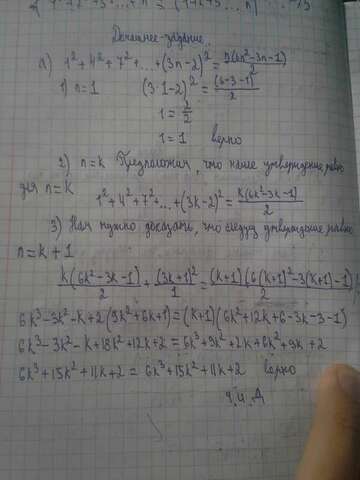 Домашнее задание.
а) 1² + 4² + 7² + ... + (3n-2)² = n(6n²-3n-1)/2
1) n=1 (3·1-2)² = (6-3-1)/2
1 = 2/2
1 = 1 верно
2) n=k Предположим, что наше утверждение верно
для n=k
1² + 4² + 7² + ... + (3k-2)² = k(6k²-3k-1)/2
3) Нам нужно доказать, что следующ утверждение
n=k+1
k(6k²-3k-1)/2 + (3k+1)²/1 = (k+1)(6(k+1)²-3(k+1)-1)/2
6k³-3k²-k+2(9k²+6k+1)=(k+1)(6k²+12k+6-3k-3-1)
6k³-3k²-k+18k²+12k+2 = 6k³+9k²+2k+6k²+9k+2
6k³+15k²+11k+2 = 6k³+15k²+11k+2 верно
ч.и.Д